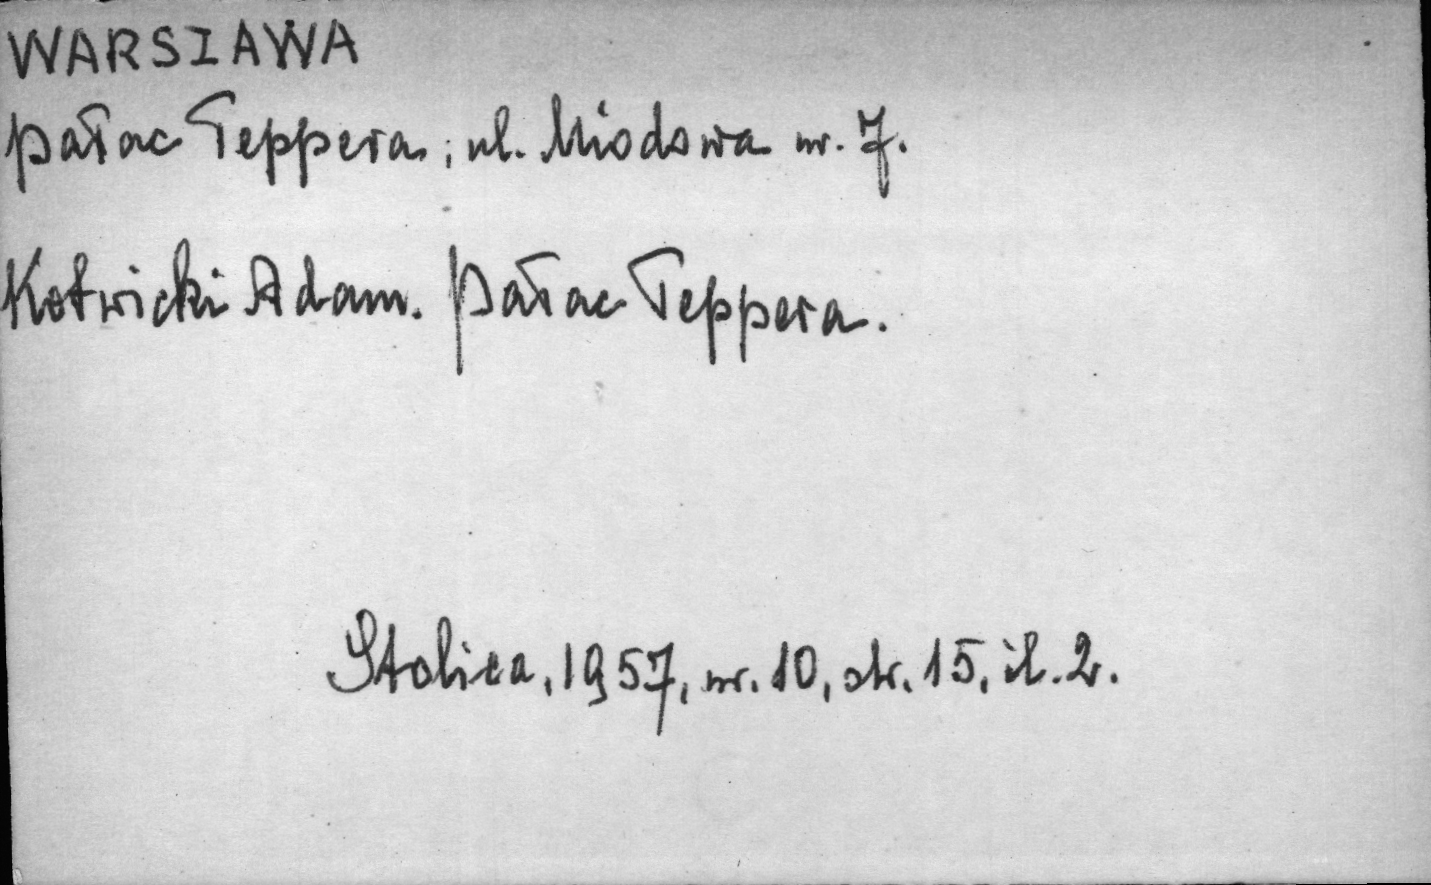 WARSZAWA
pałac Teppera, ul. Miodowa nr. 7.
Kotwicki Adam. Pałac Teppera.
Stolica, 1957, nr. 10, str. 15, il. 2.